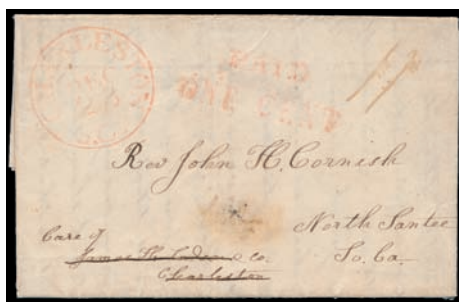 CHARLESTON
DEC
S.C.
PAID
ONE CENT
Rev John H. Cornish
North Santee
So. Ca.
Care of
James H. & Co.
Charleston